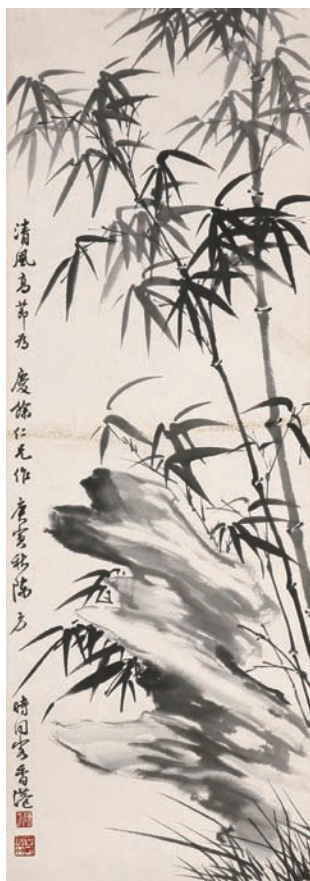 清風高節為 慶餘仁兄作 庚寅秋陳方 時同客香港